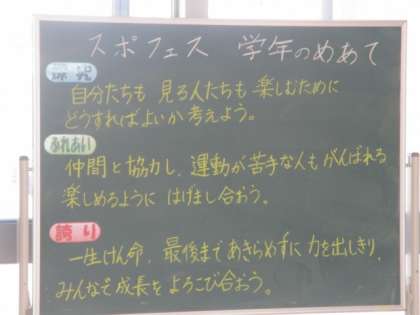 スポフェス 学年のめあて
探究
自分たちも 見る人たちも 楽しむために
どうすればよいか 考えよう。
ふれあい
仲間と協力し、運動が苦手な人も がんばれる
楽しめるように はげまし合おう。
誇り
一生けん命、最後まで あきらめずに 力を出しきり、
みんなで成長を よろこび合おう。